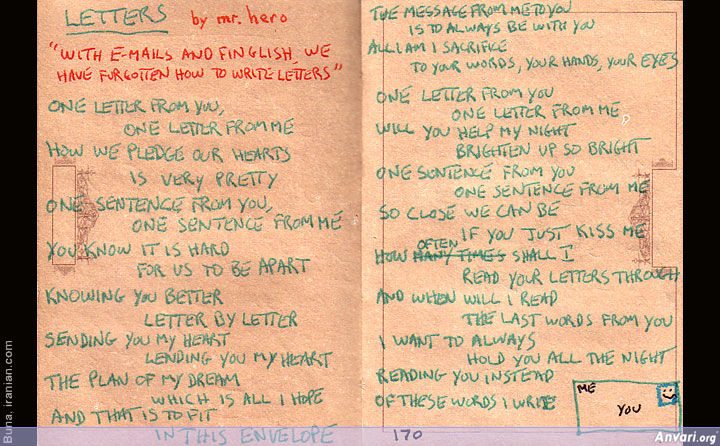 LETTERS by mr. hero
"WITH E-MAILS AND FINGLISH, WE
HAVE FURGOTTEN HOW TO WRITE LETTERS"
ONE LETTER FROM YOU,
ONE LETTER FROM ME
HOW WE PLEDGE OUR HEARTS
IS VERY PRETTY
ONE SENTENCE FROM YOU,
ONE SENTENCE FROM ME
YOU KNOW IT IS HARD
FOR US TO BE APART
KNOWING YOU BETTER
LETTER BY LETTER
SENDING YOU MY HEART
LENDING YOU MY HEART
THE PLAN OF MY DREAM
WHICH IS ALL I HOPE
AND THAT IS TO FIT
IN THIS ENVELOPE
THE MESSAGE FROM ME TO YOU
IS TO ALWAYS BE WITH YOU
ALL I AM I SACRIFICE
TO YOUR WORDS, YOUR HANDS, YOUR EYES
ONE LETTER FROM YOU
ONE LETTER FROM ME
WILL YOU HELP MY NIGHT
BRIGHTEN UP SO BRIGHT
ONE SENTENCE FROM YOU
ONE SENTENCE FROM ME
SO CLOSE WE CAN BE
IF YOU JUST KISS ME
OFTEN
HOW MANY TIMES SHALL I
READ YOUR LETTERS THROUGH
AND WHEN WILL I READ
THE LAST WORDS FROM YOU
I WANT TO ALWAYS
HOLD YOU ALL THE NIGHT
READING YOU INSTEAD
OF THESE WORDS I WRITE
ME
YOU
170
Buna, iranian.com
Anvari.org